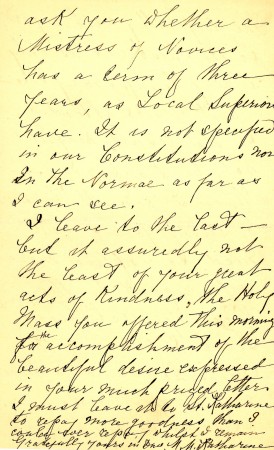 ask you whether a
Mistress of Novices
has a term of three
years, as Local Superiors
have. It is not specified
in our Constitutions nor
In the Normae as far as
I can see.
I leave to the last –
but it assuredly not
the least of your great
acts of Kindness, the Holy
Mass you offered this morning
for the accomplishment of the
beautiful desire expressed
in your much prized letter
I must leave it to St. Katharine
to repay more goodness than I
could ever repay, whilst I remain
Gratefully yours in Our M. M. Katharine